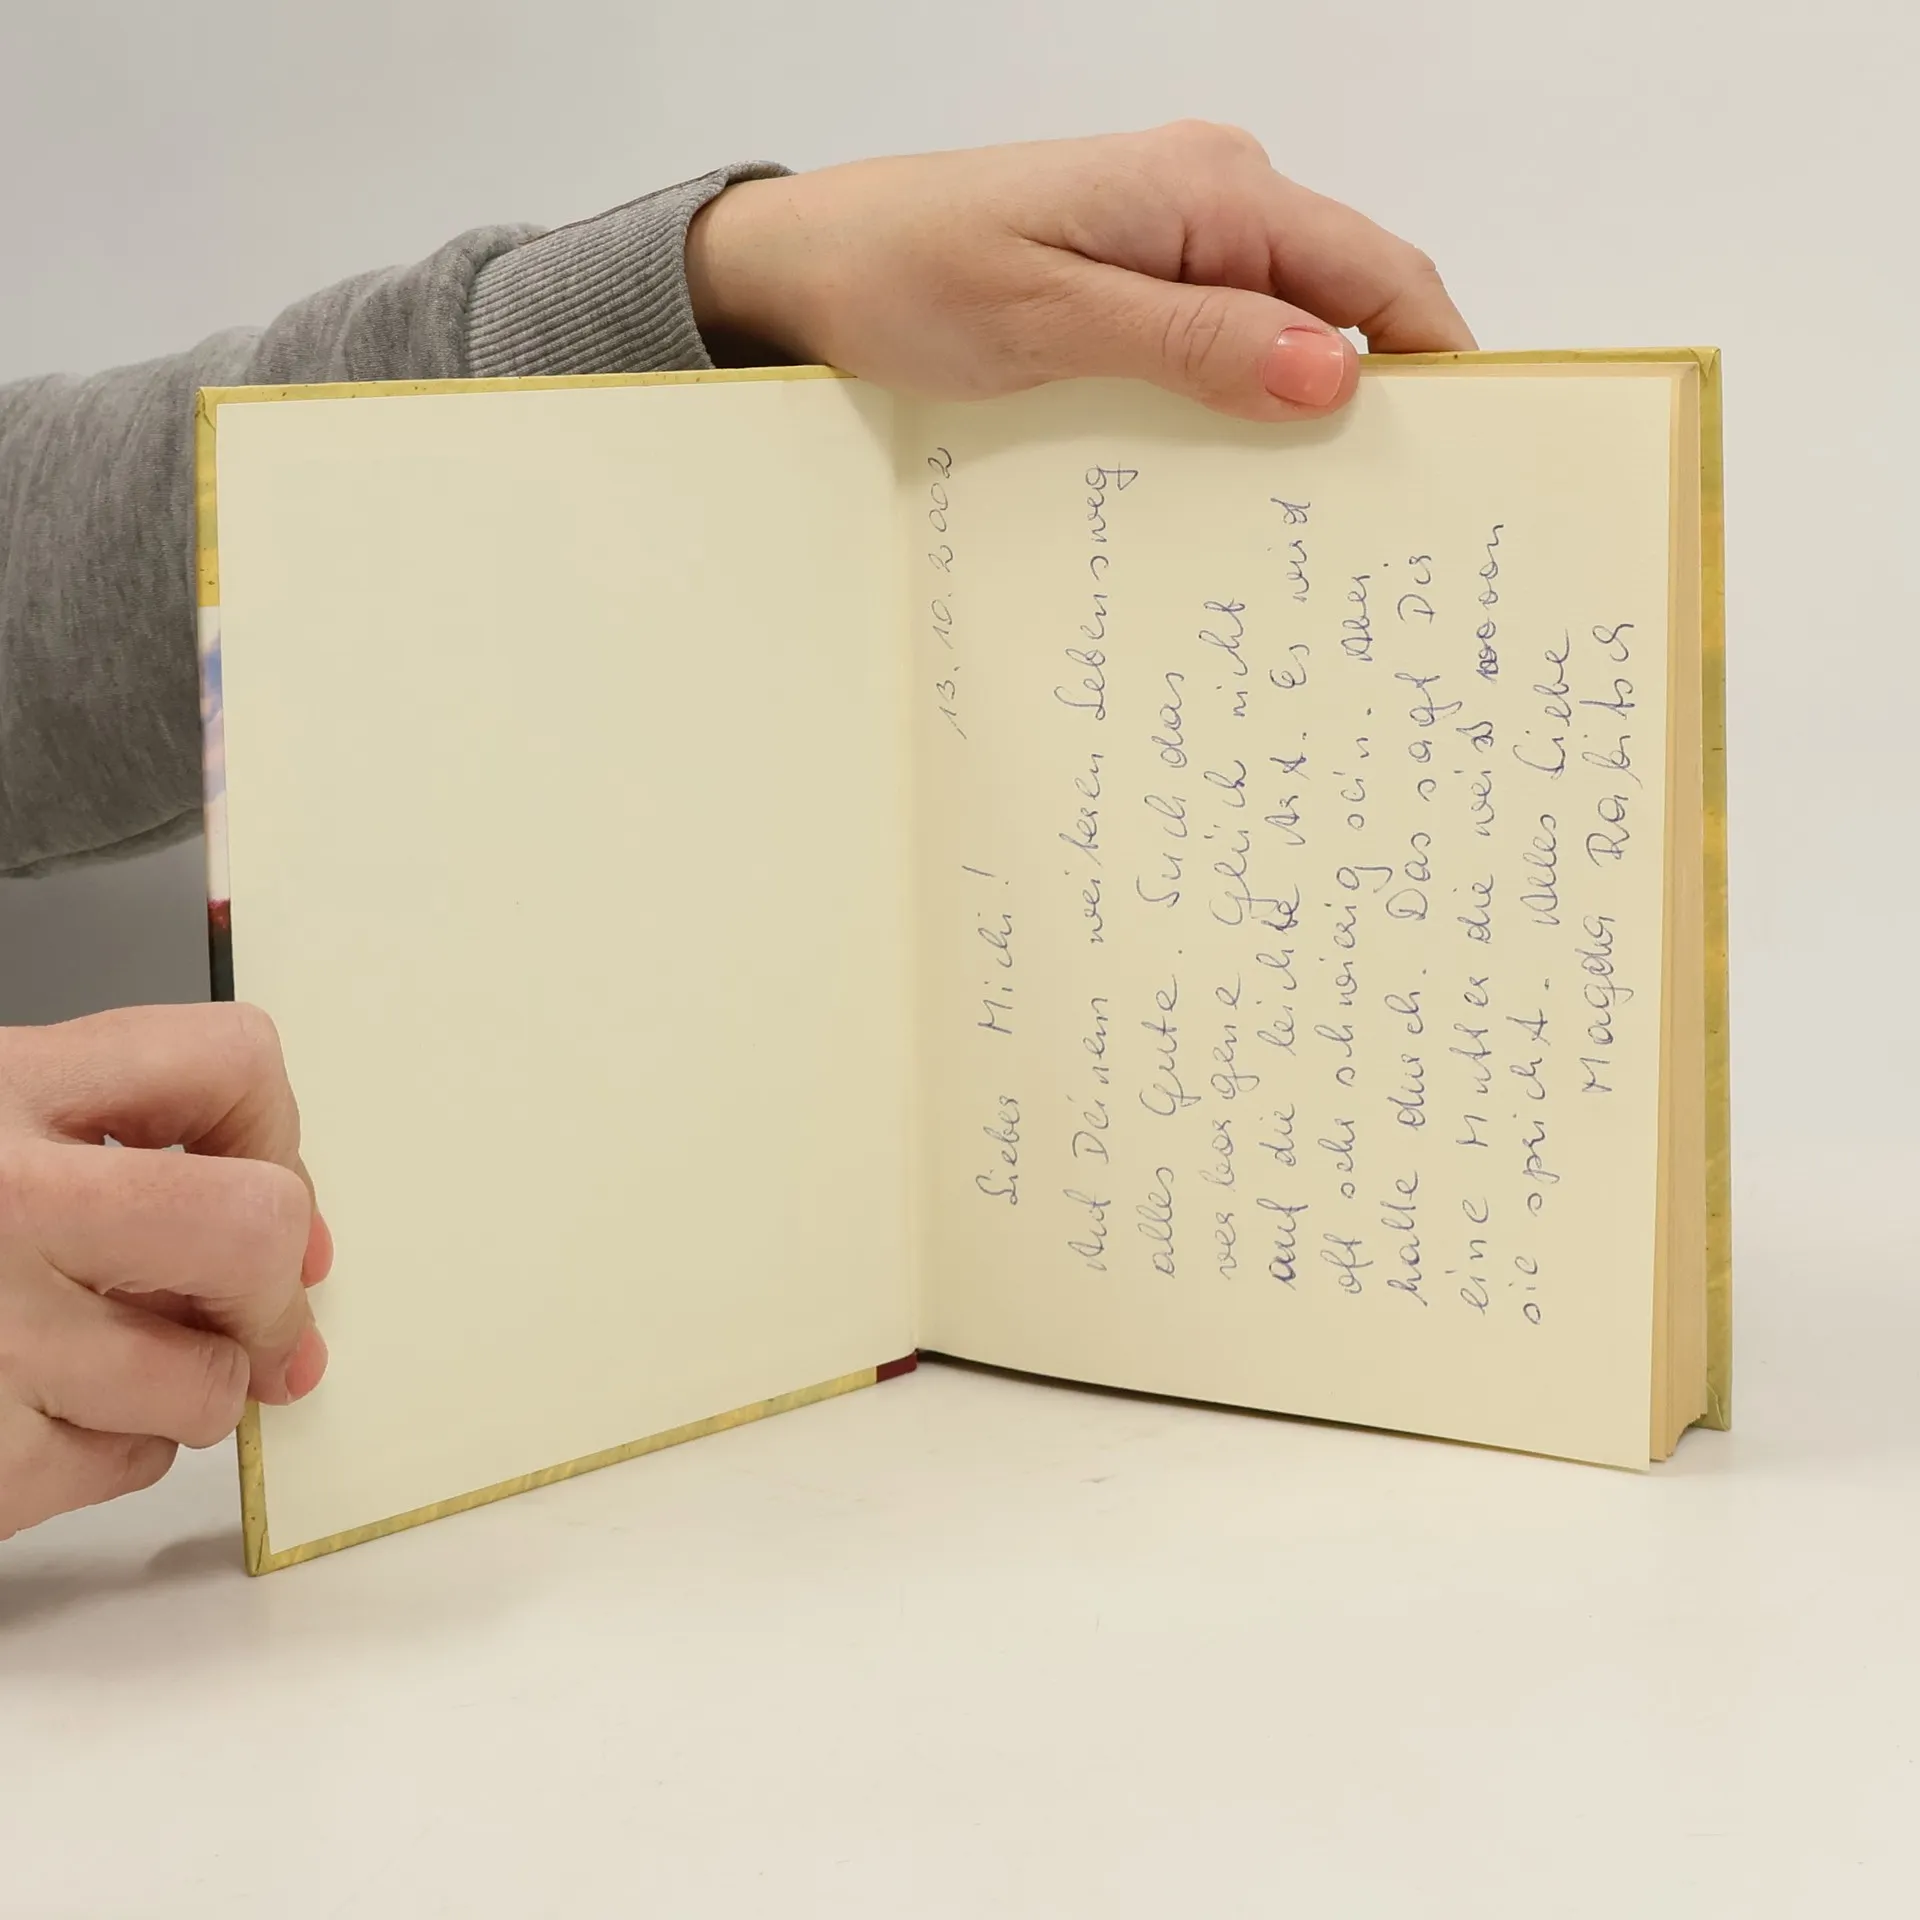 13.10.2002
Lieber Michi!
Auf Deinem weiteren Lebensweg
alles Gute. Such das
verborgene Glück nicht
auf die leichte Art. Es wird
oft sehr schwierig sein. Aber
halte durch. Das sagt Dir
eine Mutter die weiß wovon
sie spricht. Alles Liebe
Magda Rabitsch